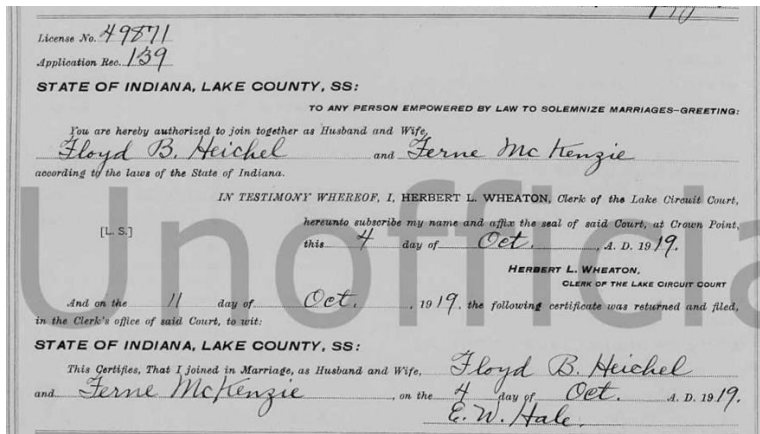 License No. 49871
Application Rec. 139
STATE OF INDIANA, LAKE COUNTY, SS:
TO ANY PERSON EMPOWERED BY LAW TO SOLEMNIZE MARRIAGES—GREETING:
You are hereby authorized to join together as Husband and Wife,
Floyd B. Heichel and Ferne McKenzie
according to the laws of the State of Indiana.
IN TESTIMONY WHEREOF, I, HERBERT L. WHEATON, Clerk of the Lake Circuit Court,
hereunto subscribe my name and affix the seal of said Court, at Crown Point,
[L. S.]
this 4 day of Oct. A. D. 1919.
HERBERT L. WHEATON,
CLERK OF THE LAKE CIRCUIT COURT
And on the 11 day of Oct., 1919, the following certificate was returned and filed,
in the Clerk's office of said Court, to wit:
STATE OF INDIANA, LAKE COUNTY, SS:
This Certifies, That I joined in Marriage, as Husband and Wife, Floyd B. Heichel
and Ferne McKenzie, on the 4 day of Oct. A. D. 1919.
E. W. Hale.
Unofficia